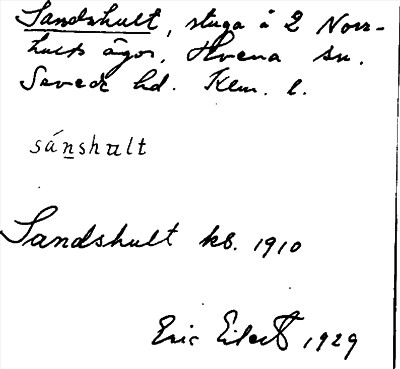 Sandshult, stuga å 2 Norr-
hults ägor, Hvena sn.
Sevede hd. Klm. l.
sánshult
Sandshult kb. 1910
Eric Eilert 1929